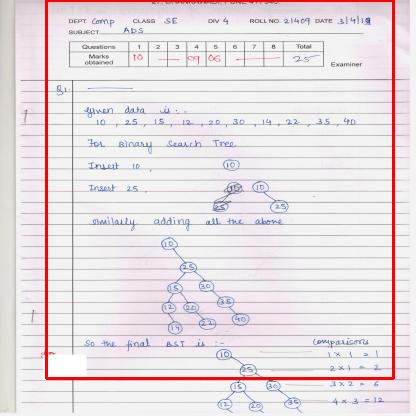 DEPT. Comp CLASS SE DIV 4 ROLL NO. 21409 DATE 3/4/19
SUBJECT ADS
Questions 1 2 3 4 5 6 7 8 Total
Marks obtained 10 09 06 25
Examiner
Q1.
Given data is :-
10 , 25 , 15 , 12 , 20 , 30 , 14 , 22 , 35 , 40
For Binary Search Tree
Insert 10 , 10
Insert 25 , 10 25
similarly adding all the above
10
25
15 30
12 20 35
14 22 40
So the final BST is :- comparisons
10 1 × 1 = 1
25 2 × 1 = 2
15 30 3 × 2 = 6
12 20 35 4 × 3 = 12